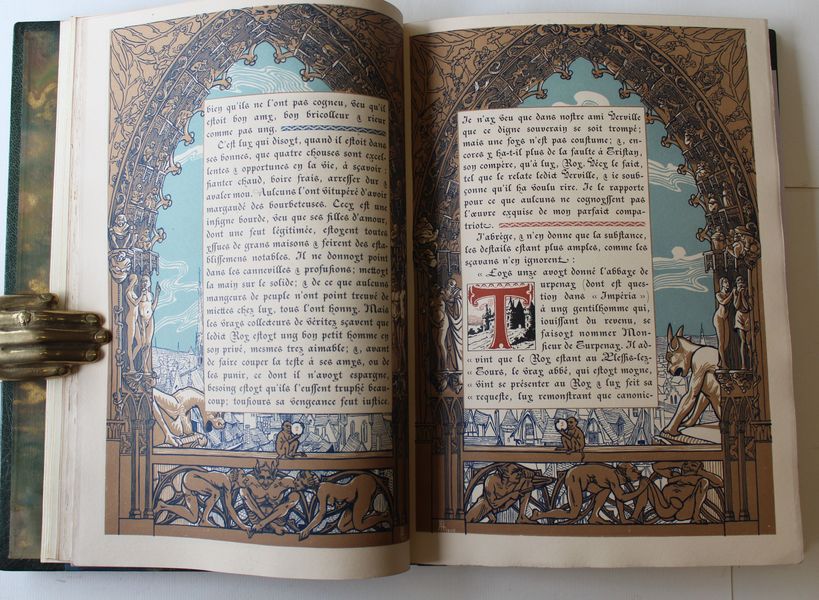 bien qu'ils ne l'ont pas cogneu, veu qu'il
estoit boy amy, boy bricolleur & rieur
comme pas ung.
C'est luy qui disoyt, quand il estoit dans
ses bonnes, que quatre chouses sont excel-
lentes & opportunes en la vie, à sçavoir :
fianter chaud, boire frais, arresser dur &
avaler mou. Aulcuns l'ont vitupéré d'avoir
margaudé des bourbeteuses. Cecy est une
insigne bourde, veu que ses filles d'amour,
dont une feut légitimée, estoyent toutes
yssues de grans maisons & feirent des esta-
blissemens notables. Il ne donnoyt point
dans les cannevilles & profusions; mettoyt
la main sur le solide; & de ce que aulcuns
mangeurs de peuple n'ont point trouvé de
miettes chez luy, tous l'ont honny. Mais
les vrays collecteurs de véritez sçavent que
ledict Roy estoyt ung boy petit homme en
son privé, mesmes trez aimable; &, avant
de faire couper la teste à ses amys, ou de
les punir, ce dont il n'avoyt espargne,
besoing estoyt qu'ils l'eussent truphé beau-
coup; tousiours sa vengeance feut iustice.
Je n'ay veu que dans nostre ami Verville
que ce digne souverain se soit trompé;
mais une foys n'est pas coustume; &, en-
cores y ha-t-il plus de la faulte à Tristan,
son compère, qu'à luy, Roy. Vécy le faict,
tel que le relate ledict Verville, & ie soub-
çonne qu'il ha voulu rire. Je le rapporte
pour ce que aulcuns ne cognoyssent pas
l'œuvre exquise de mon parfaict compa-
triote.
J'abrège, & n'en donne que la substance,
les destails estant plus amples, comme les
sçavans n'en ignorent :
« Loys unze avoyt donné l'abbaye de
Turpenay (dont est ques-
tion dans « Impéria »)
à ung gentilhomme qui,
iouissant du revenu, se
faisoyt nommer Mon-
sieur de Turpenay. Il ad-
« vint que le Roy estant au Plessis-lez-
« Tours, le vray abbé, qui estoyt moyne
« vint se présenter au Roy & luy feit sa
« requeste, luy remonstrant que canonic-